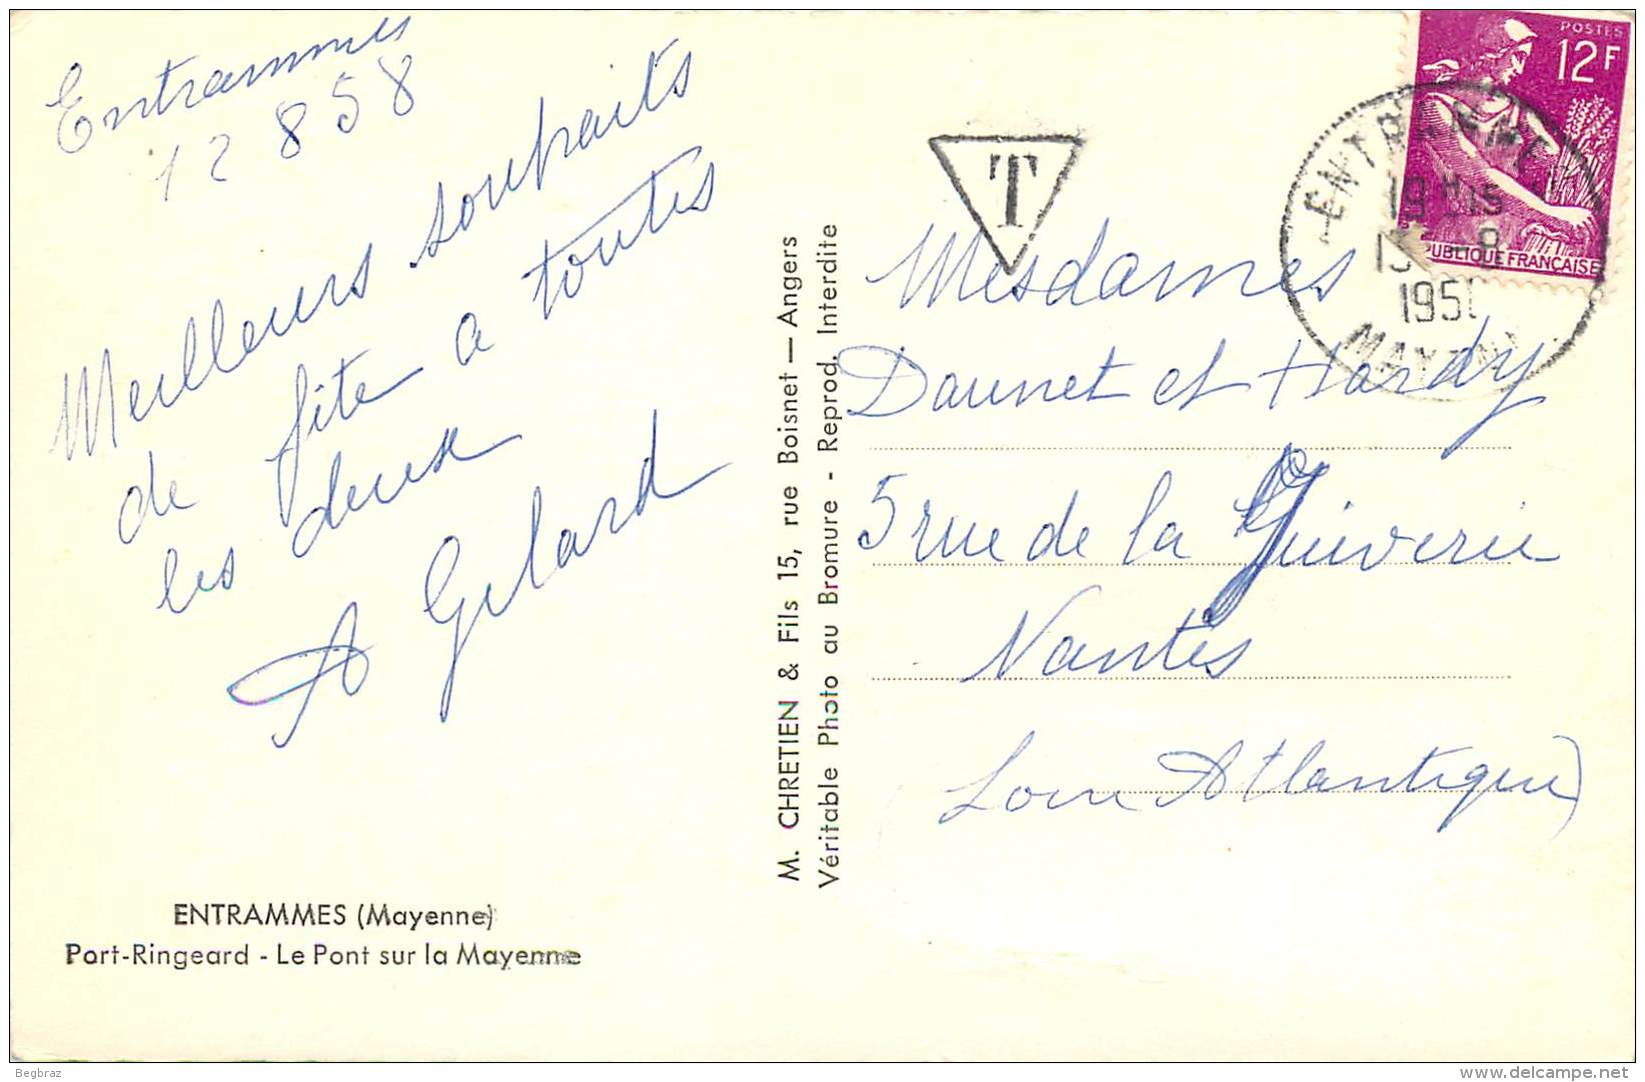 Entrammes
12 8 58
Meilleurs souhaits
de fête a toutes
les deux
A Gelard
ENTRAMMES (Mayenne)
Port-Ringeard - Le Pont sur la Mayenne
M. CHRETIEN & Fils 15, rue Boisnet — Angers
Véritable Photo au Bromure - Reprod. Interdite
T
POSTES
12F
PUBLIQUE FRANÇAISE
ENTRAMMES
19 H 15
13 -8
195
MAYENNE
Mesdames
Daunet et Hardy
5 rue de la Juiverie
Nantes
Loire Atlantique)
Begbraz
www.delcampe.net